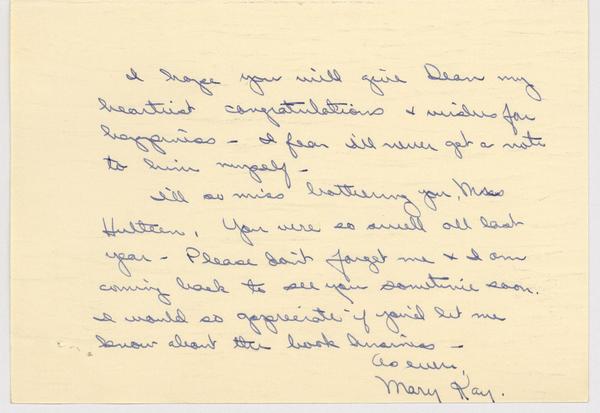 I hope you will give Dean my
heartiest congratulations + wishes for
happiness - I fear I'll never get a note
to him myself -
I'll so miss bothering you, Miss
Hultzen. You were so swell all last
year - Please don't forget me + I am
coming back to see you sometime soon.
I would so appreciate if you'd let me
know about the book business -
As ever,
Mary Kay.